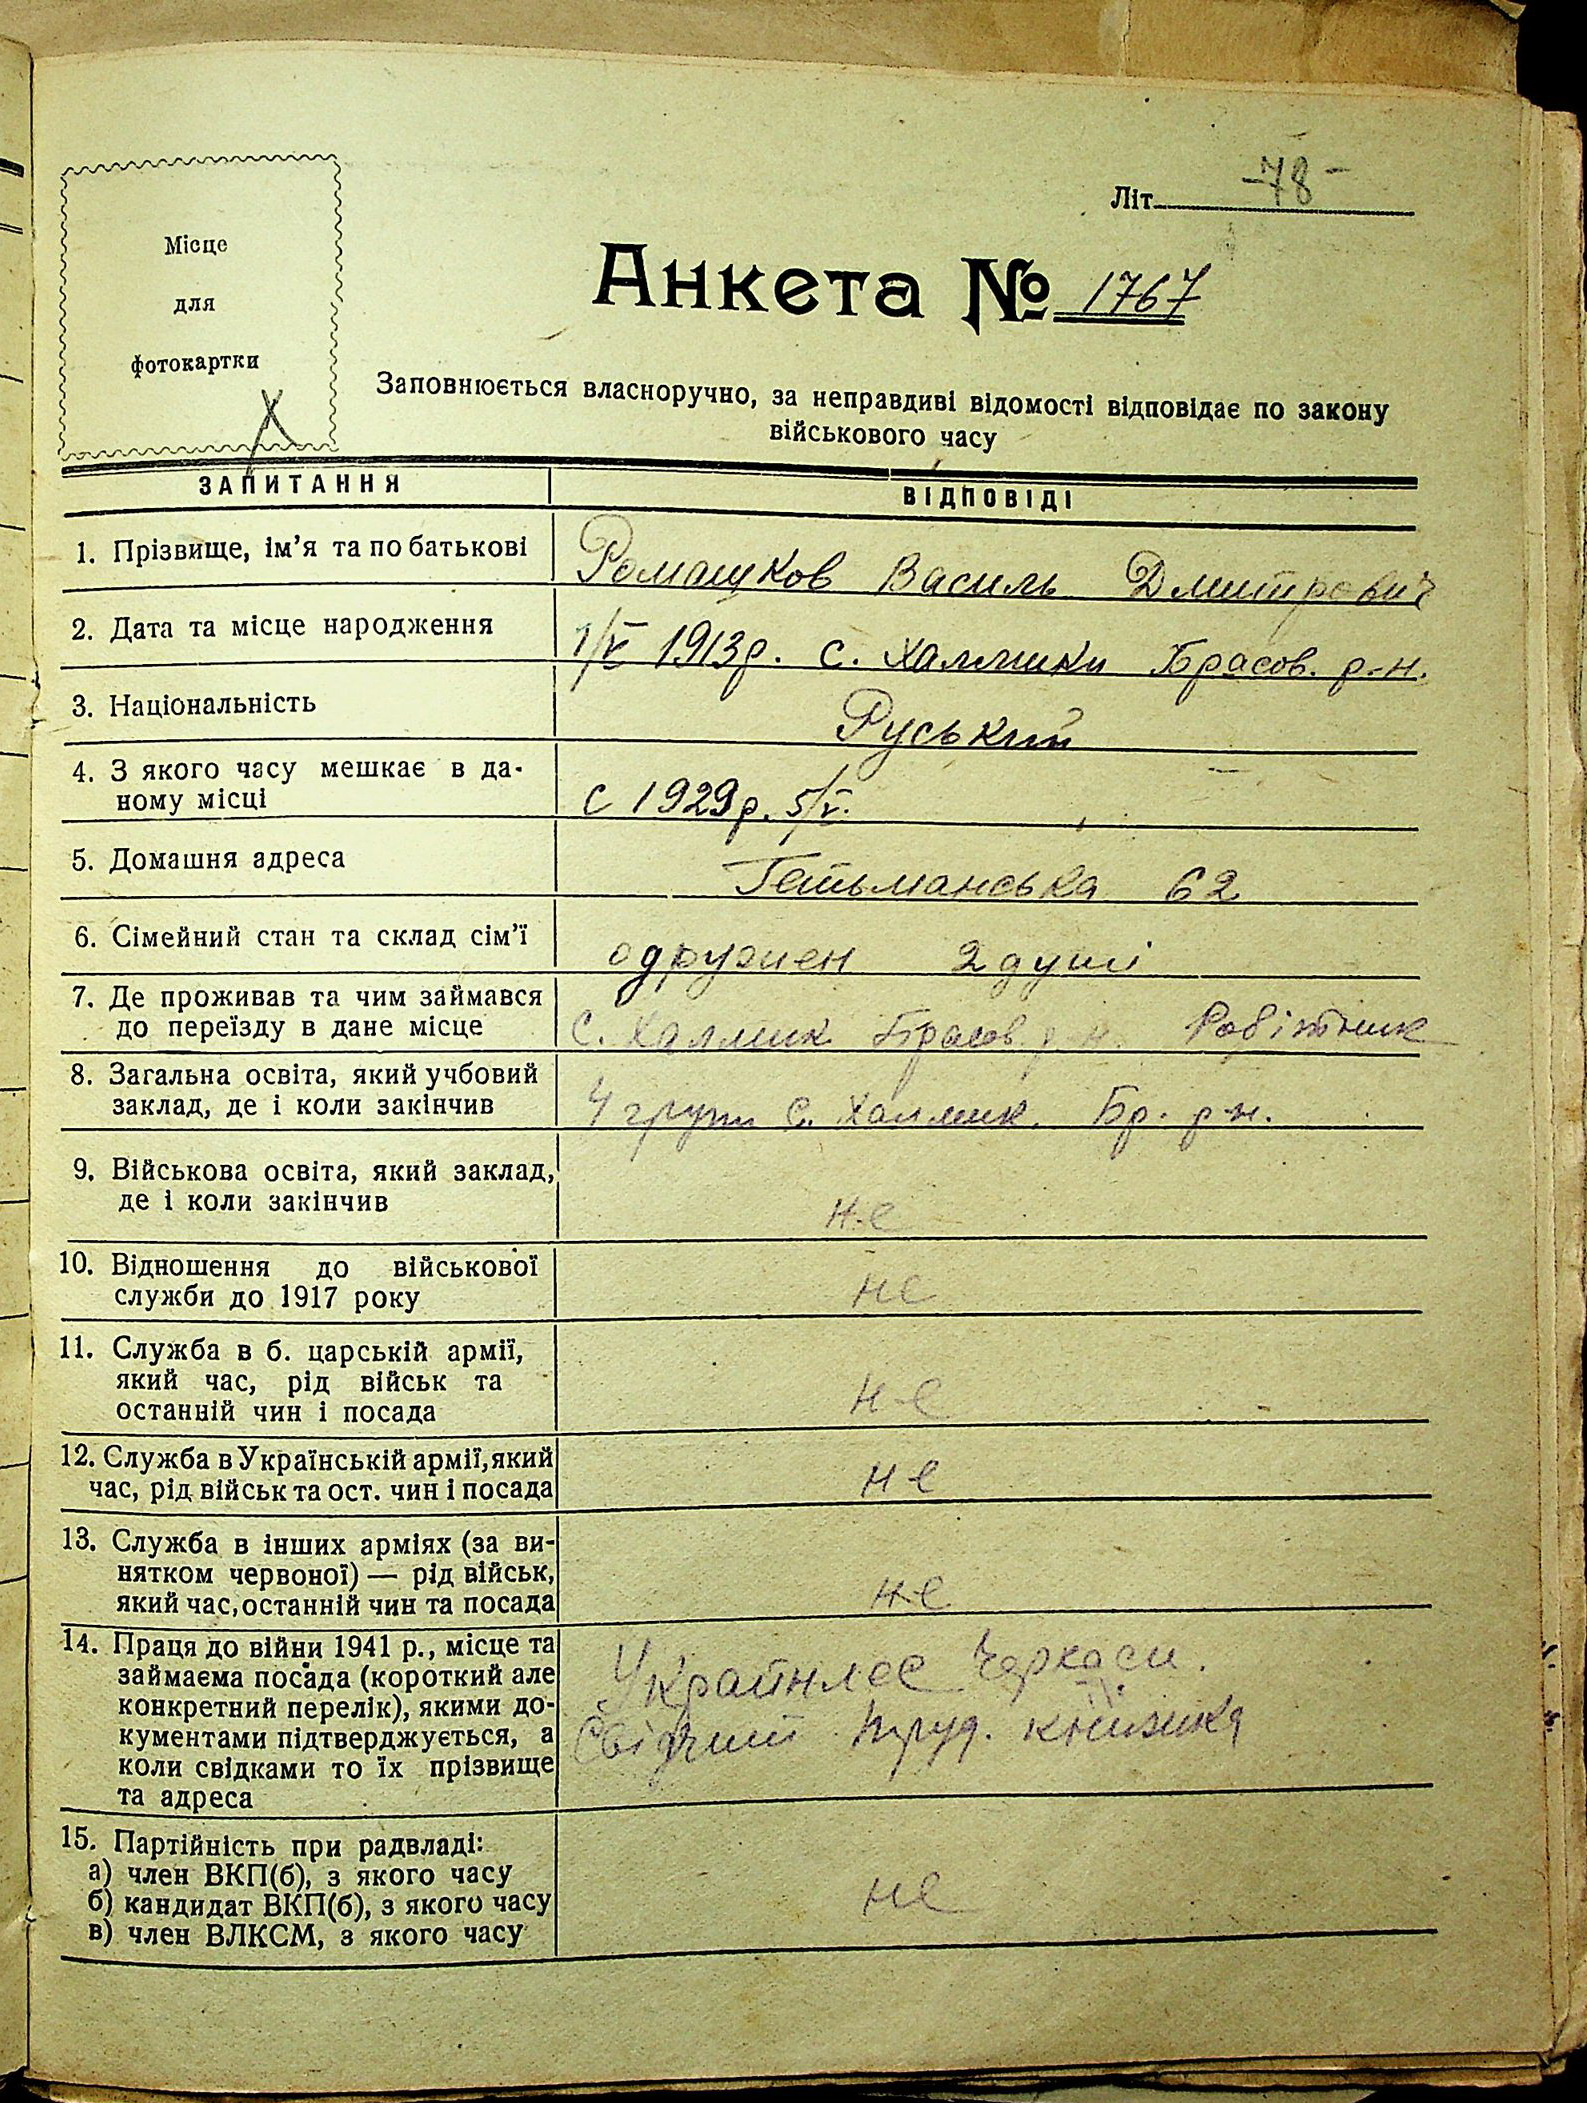 Літ. -78-
Місце
для
фотокартки
Анкета № 1767
Заповнюється власноручно, за неправдиві відомості відповідає по закону
військового часу
ЗАПИТАННЯ ВІДПОВІДІ
1. Прізвище, ім'я та по батькові Ромашков Василь Дмитрович
2. Дата та місце народження 1/V 1913р. с. Халмики Брасов. р-н.
3. Національність Руський
4. З якого часу мешкає в да-
ному місці с 1929р. 5/V.
5. Домашня адреса Гетьманська 62
6. Сімейний стан та склад сім'ї одружен 2 душі
7. Де проживав та чим займався
до переїзду в дане місце С. Халмик Брасов р-н. Робітник
8. Загальна освіта, який учбовий
заклад, де і коли закінчив 4 груп с. Халмик. Бр. р-н.
9. Військова освіта, який заклад,
де і коли закінчив не
10. Відношення до військової
служби до 1917 року не
11. Служба в б. царській армії,
який час, рід військ та
останній чин і посада не
12. Служба в Українській армії, який
час, рід військ та ост. чин і посада не
13. Служба в інших арміях (за ви-
нятком червоної) — рід військ,
який час, останній чин та посада не
14. Праця до війни 1941 р., місце та
займаєма посада (короткий але
конкретний перелік), якими до-
кументами підтверджується, а
коли свідками то їх прізвище
та адреса
Украінлес Черкаси.
труд. книжка
15. Партійність при радвладі:
а) член ВКП(б), з якого часу
б) кандидат ВКП(б), з якого часу
в) член ВЛКСМ, з якого часу
не